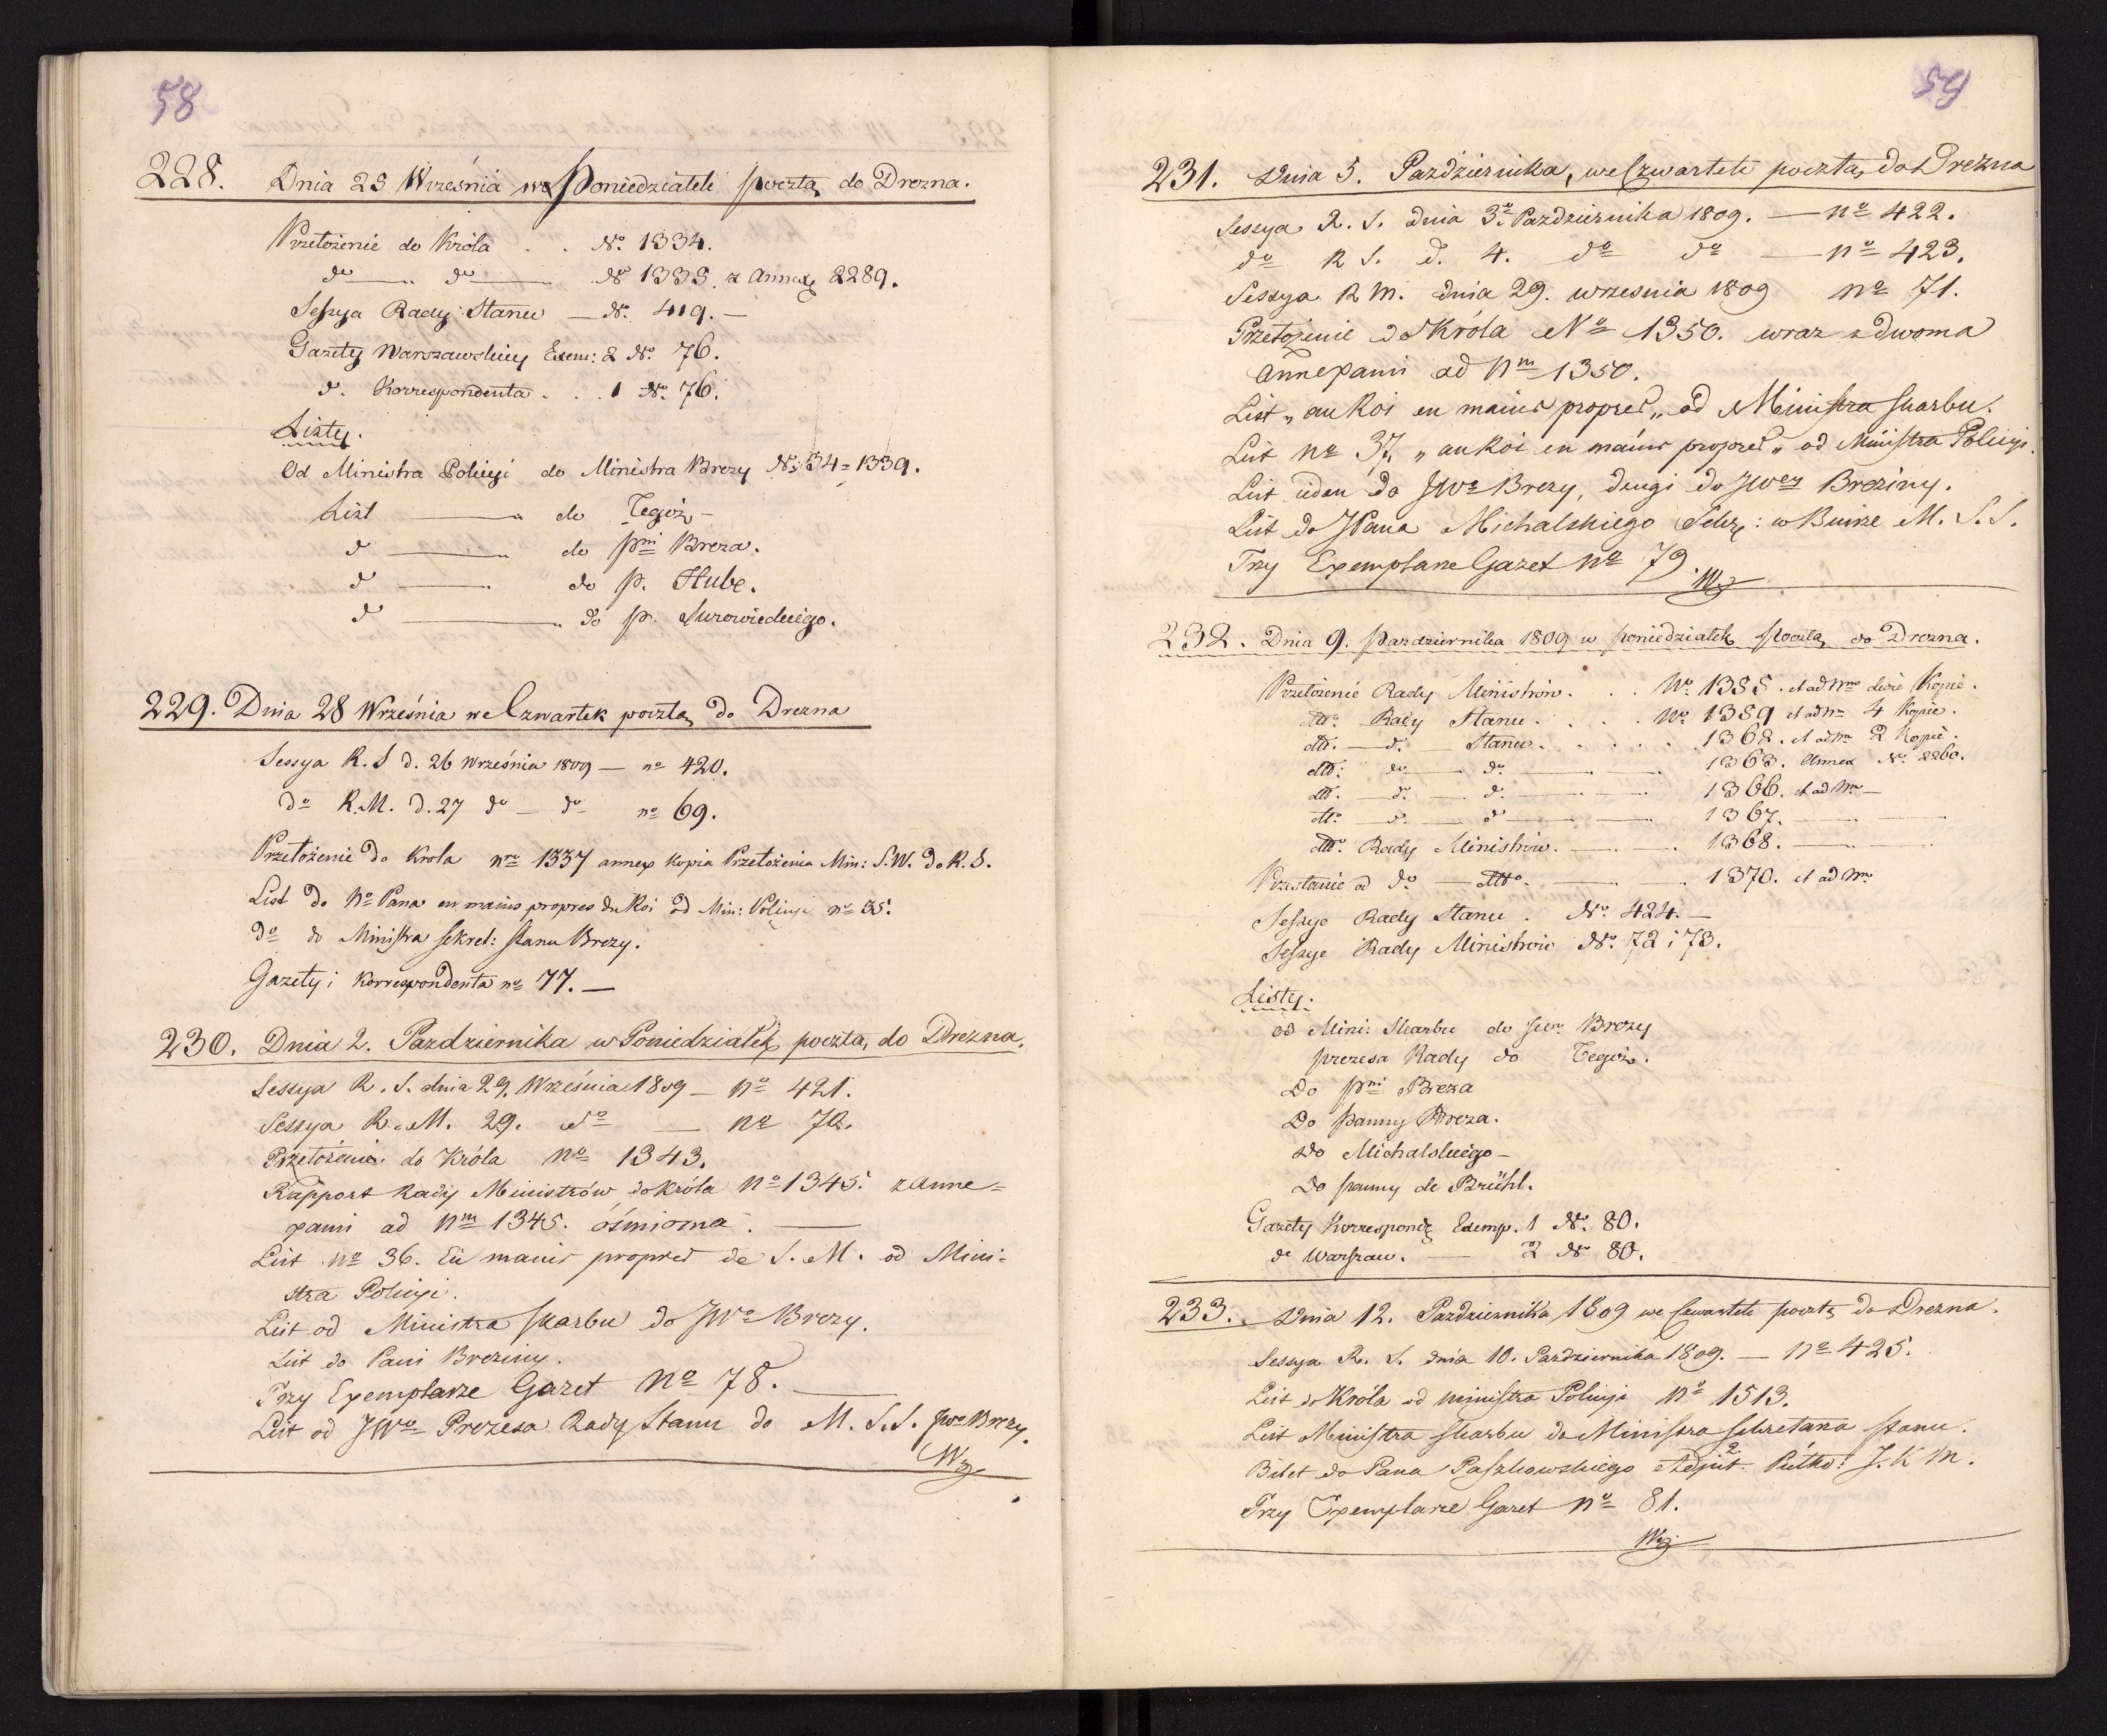 58
228. Dnia 25 Września we Poniedziałek pocztą do Drezna.
Przełożenie do Króla . . No. 1334.
do — do — No 1335. z Annexą 2289.
Sessya Rady Stanu — No. 419. —
Gazety Warszawskiey Exem: 2 No. 76.
d. Korrespondenta . . . 1 No. 76.
Listy.
Od Ministra Policyi do Ministra Brezy No. 34 = 1339.
List — do Tegoż —
d — do Pni Breza.
d — do p. Hube.
d — do p. Surowieckiego.
229. Dnia 28 Września we Czwartek pocztą do Drezna
Sessya R. S d. 26 Września 1809 — no 420.
do R.M. d. 27 do — do no 69.
Przełożenie do Krola nro 1337 annex kopia Przełożenia Min: S.W. do R. S.
List do No Pana en mains propres du Roi od Min: Policyi no 35.
do do Ministra Sekret: Stanu Brezy.
Gazety i Korrespondenta no 77. —
230. Dnia 2. Pazdziernika w Poniedziałek pocztą, do Drezna.
Sessya R. S. dnia 29. Września 1809 — no 421.
Sessya R. M. 29. do — no 70.
Przełożenie do Króla no 1343.
Rapport Rady Ministrów do Króla no 1345. z Anne=
xami ad Nm 1345. óśmioma. —
List no 36. En mains propres de S. M. od Mini=
stra Policyi.
List od Ministra Skarbu do JWo Brezy.
List do Pani Breziny.
Trzy Exemplarze Gazet No 78. —
List od JWo Prezesa Rady Stanu do M. S.S. JWo Brezy.
59
231. Dnia 5. Pazdziernika, we Czwartek pocztą, do Drezna
Sessya R. S. dnia 3o Pazdziernika 1809. — no 422.
do R S. d. 4. do do — no 423.
Sessya R M. dnia 29. wrzesnia 1809 no 71.
Przełożenie do Króla No 1350. wraz z dwoma
Annexami ad Nm 1350.
List „ au Roi en mains propres „ od Ministra Skarbu.
List no 37. „ au Roi en mains propres „ od Ministra Policyi.
List ieden do JWo Brezy, drugi do JWey Breziny.
List do JPana Michalskiego Sekr: w Biurze M. S. S.
Trzy Exemplarze Gazet no 79.
232. Dnia 9. Pazdziernika 1809 w poniedziałek pocztą do Drezna.
Przełożenie Rady Ministrów. . . No. 1355. et ad Nm dwie Kopie.
dtto. Rady Stanu. . . . No. 1359 et ad Nm 4 Kopie.
dtto. — d. — Stanu. . . . . . 1362. et ad Nm 2 Kopie.
dtto: do — do. — — 1363. Annex No. 2260.
dtto. — d. — d. — — 1366. et ad Nm —
dtto. — d. — d — — 1367. — —
dtto. Rady Ministrów. — — 1368. — —
Przesłanie od do. — dtto. — — 1370. et ad Nm
Sessye Rady Stanu. No. 424. —
Sessye Rady Ministrów No. 72 i 73.
Listy.
od Mini: Skarbu do JWo Brezy
prezesa Rady do Tegoż.
Do Pni Breza
Do Panny Breza.
Do Michalskiego —
Do Panny de Brühl.
Gazety Korrespond Exemp. 1 No. 80.
do Warszaw. — 2 No 80.
233. Dnia 12. Pazdziernika 1809 we Czwartek pocztą do Drezna.
Sessya R. S. dnia 10. Pazdziernika 1809. — no 425.
List do Króla od ministra Policyi No 1513.
List Ministra Skarbu do Ministra Sekretarza Stanu.
Bilet do Pana Paszkowskiego Adjut. Pułko: J. K M.
Trzy Exemplarze Gazet no 81.